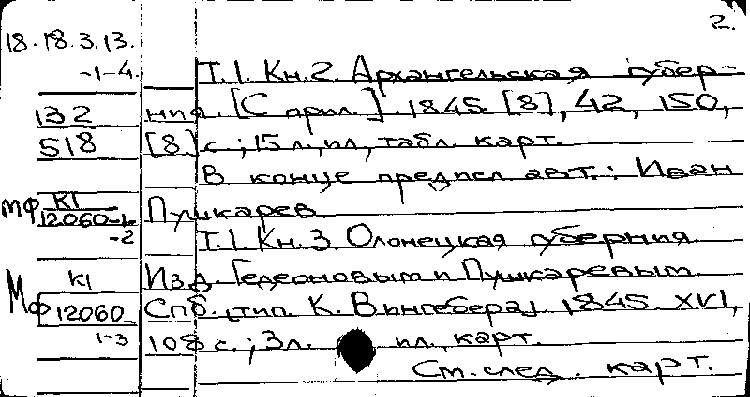 2.
18.18.3.13.
-1-4.
Т.1. Кн.2. Архангельская губер-
132 ния. [С прил.] 1845. [8], 42, 150,
518 [8] с.; 15 л., пл., табл. карт.
В конце предисл. авт.: Иван
МФ К1 12060-1- Пушкарев
-2
Т.1. Кн.3. Олонецкая губерния
К1 Изд. Гедеоновым и Пушкаревым.
МФ 12060 Спб., тип. К. Вингебера, 1845. XVI,
1-3 108 с.; 3 л. пл., карт.
См. след. карт.